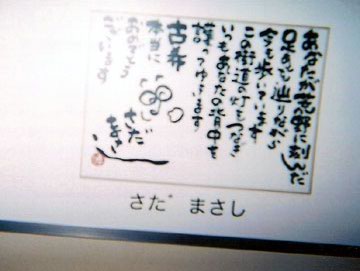 あなたが荒野に刻んだ
足あとを辿りながら
今も歩いています
この街道の灯をつなぎ
いつもあなたの背中を
護ってゆきます
古希
本当に
おめでとう
ございます
さだ
まさし
さだ まさし